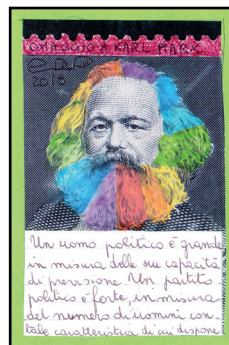 OMAGGIO A KARL MARX
2018
Un uomo politico è grande
in misura delle sue capacità
di previsione. Un partito
politico è forte, in misura
del numero di uomini con
tale caratteristica di cui dispone